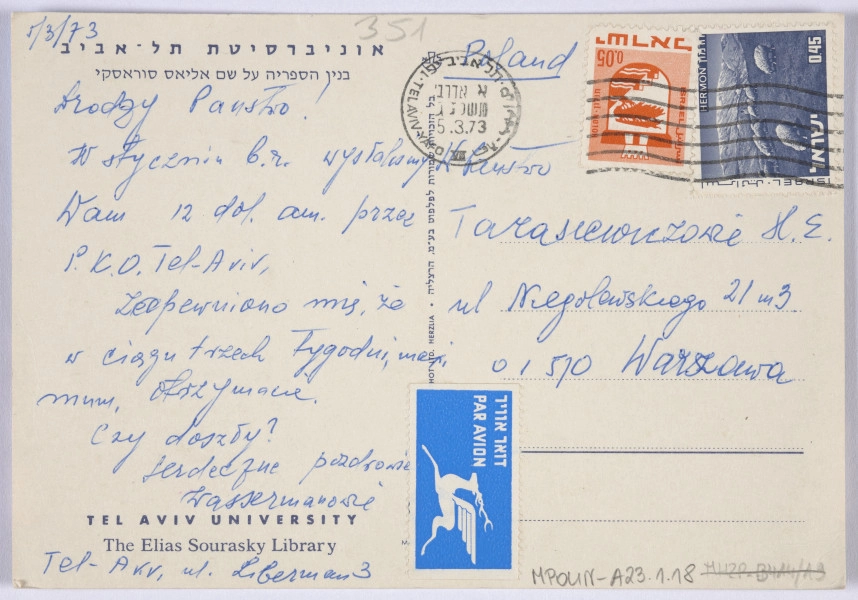 5/3/73
351
אוניברסיטת תל-אביב
בנין הספריה על שם אליאס סוראסקי
Drodzy Państwo!
W styczniu b.r. wysłaliśmy
Wam 12 dol. am. przez
P.K.O. Tel-Aviv,
Zapewniono mię, że
w ciągu trzech tygodni, maxi
mum, otrzymacie.
Czy doszły?
Serdeczne pozdrowie
Wassermanowie
TEL AVIV UNIVERSITY
The Elias Sourasky Library
Tel-Aviv, ul. Liberman 3
HERZLIA
Poland
W. Państwo
Tarasiewiczowie H. E.
ul Niegolewskiego 21 m 3
01 510 Warszawa
תל-אביב-יפו
TEL AVIV-YAFO
5.3.73
ישראל
0.05
ISRAEL
HERMON
0.45
ישראל
ISRAEL
דואר אויר
PAR AVION
MPOLIN-A23.1.18